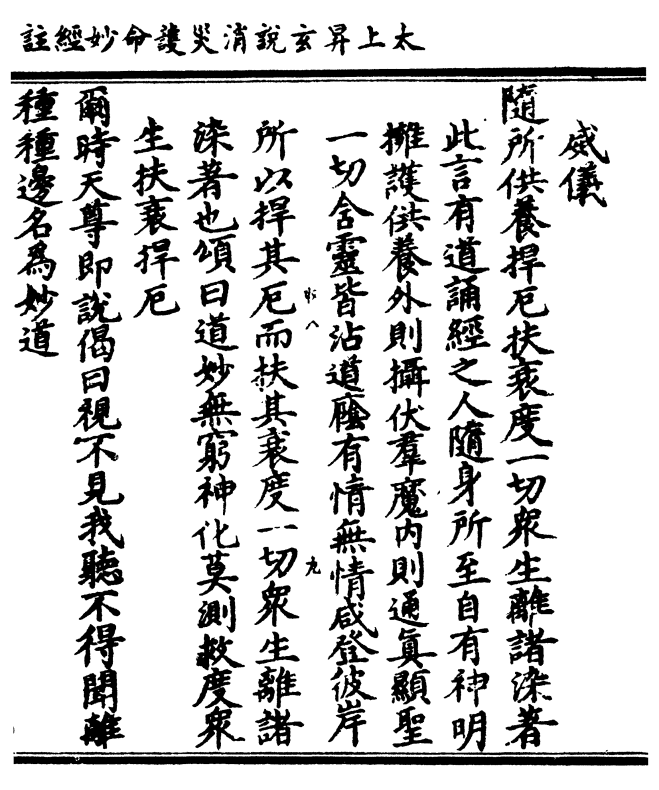 太上昇玄說消災護命妙經註
威儀
隨所供養捍厄扶衰度一切衆生離諸染著
此言有道誦經之人隨身所至自有神明
擁護供養外則攝伏羣魔內則通真顯聖
一切含靈皆沾道廕有情無情咸登彼岸
所以捍其厄而扶其衰度一切衆生離諸
染著也頌曰道妙無窮神化莫測救度衆
生扶衰捍厄
爾時天尊即說偈曰視不見我聽不得聞離
種種邊名為妙道